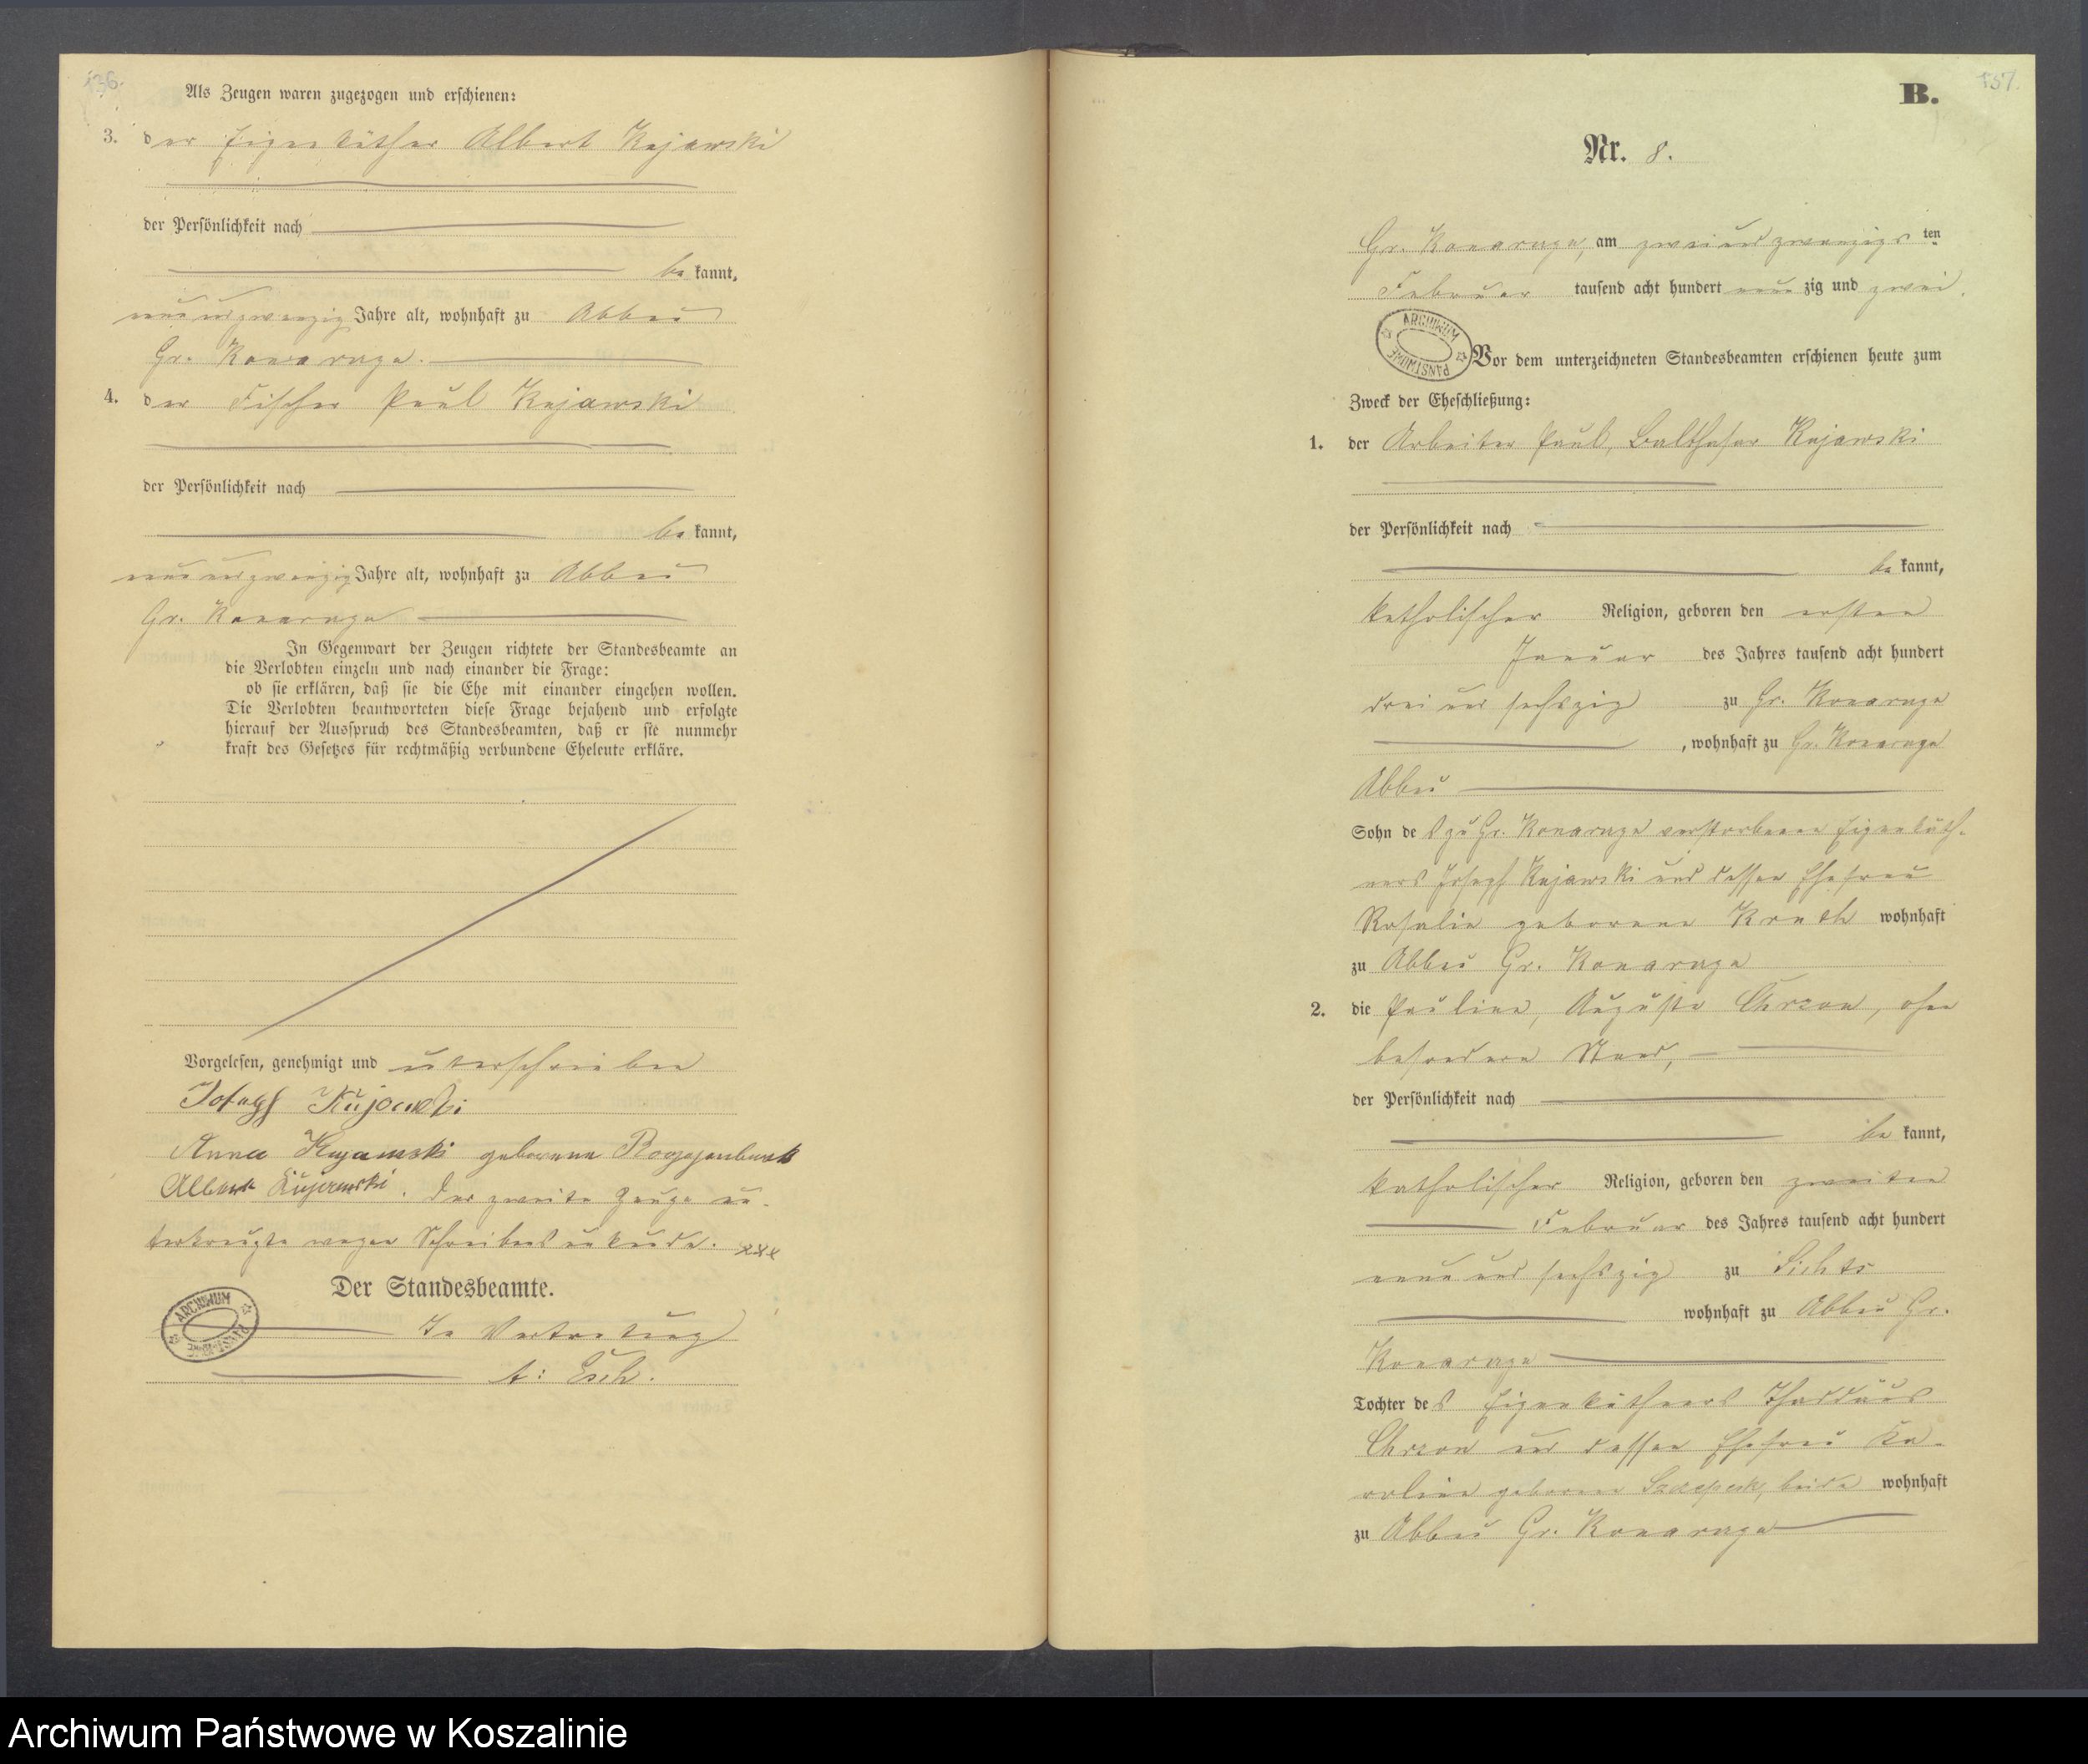 136.
Als Zeugen waren zugezogen und erschienen:
3. der Eigenkäthner Albert Kujawski
der Persönlichkeit nach
be kannt,
neunundzwanzig Jahre alt, wohnhaft zu Abbau
Gr. Konarczyn.
4. der Fischer Paul Kujawski
der Persönlichkeit nach
be kannt,
neunundzwanzig Jahre alt, wohnhaft zu Abbau
Gr. Konarczyn
In Gegenwart der Zeugen richtete der Standesbeamte an
die Verlobten einzeln und nach einander die Frage:
ob sie erklären, daß sie die Ehe mit einander eingehen wollen.
Die Verlobten beantworteten diese Frage bejahend und erfolgte
hierauf der Ausspruch des Standesbeamten, daß er sie nunmehr
kraft des Gesetzes für rechtmäßig verbundene Eheleute erkläre.
Vorgelesen, genehmigt und unterschrieben
Joseph Kujawski
Anna Kujawski geborene Roggenbuck
Albert Kujawski. Der zweite Zeuge un-
terkreuzte wegen Schreibensunkunde. xxx
Der Standesbeamte.
In Vertretung
A: Esch.
ARCHIWUM PAŃSTWOWE
B.
137.
Nr. 8.
Gr. Konarczyn, am zweiundzwanzigs ten
Februar tausend acht hundert neun zig und zwei.
ARCHIWUM PAŃSTWOWE
Vor dem unterzeichneten Standesbeamten erschienen heute zum
Zweck der Eheschließung:
1. der Arbeiter Paul, Balthasar Kujawski
der Persönlichkeit nach
be kannt,
katholischer Religion, geboren den ersten
Januar des Jahres tausend acht hundert
drei und sechszig zu Gr. Konarczyn
, wohnhaft zu Gr. Konarczyn
Abbau
Sohn des zu Gr. Konarczyn verstorbenen Eigenkäth-
ners Joseph Kujawski und dessen Ehefrau
Rosalie geborene wohnhaft
zu Abbau Gr. Konarczyn
2. die Pauline, Auguste Chrzon, ohne
besonderen Stand,
der Persönlichkeit nach
be kannt,
katholischer Religion, geboren den zweiten
Februar des Jahres tausend acht hundert
neun und sechszig zu Sichts
wohnhaft zu Abbau Gr.
Konarczyn
Tochter des Eigenkäthners Thaddäus
Chrzon und dessen Ehefrau Ka-
roline geborene beide wohnhaft
zu Abbau Gr. Konarczyn
Archiwum Państwowe w Koszalinie